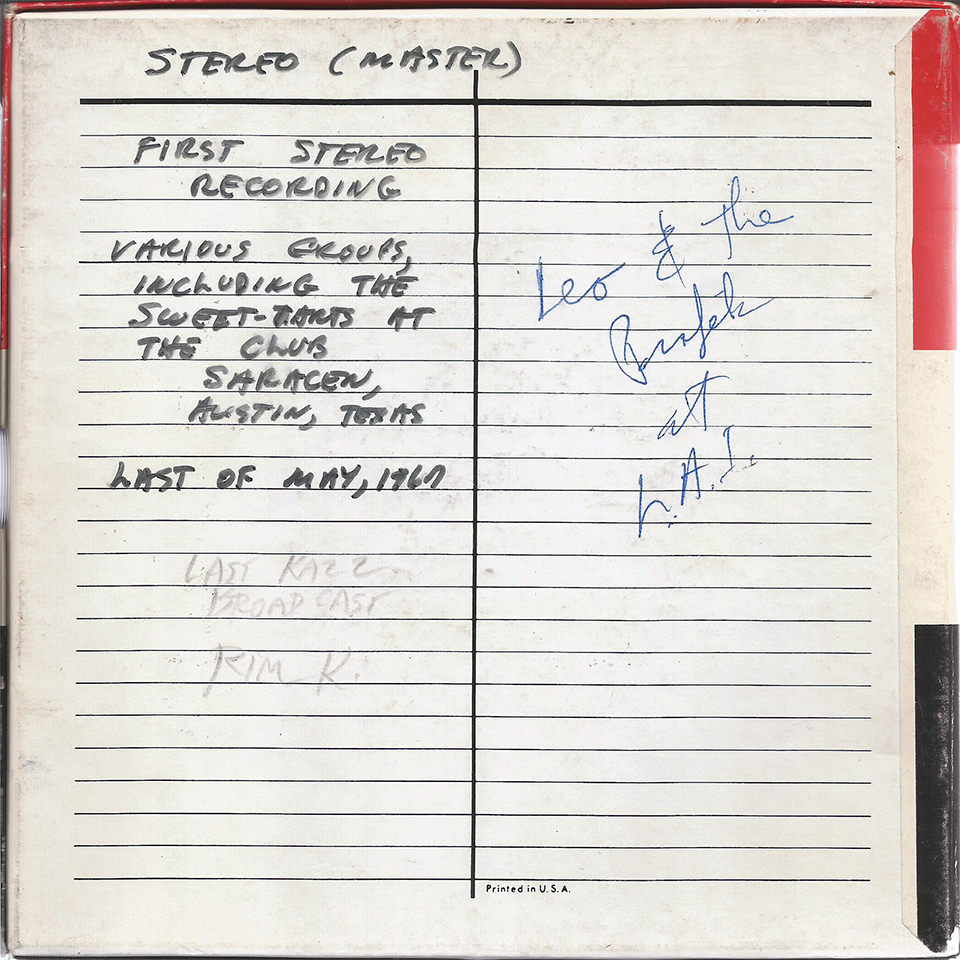 STEREO (MASTER)
FIRST STEREO
RECORDING
VARIOUS GROUPS,
INCLUDING THE
SWEET-TARTS AT
THE CLUB
SARACEN,
AUSTIN, TEXAS
LAST OF MAY, 1967
LAST KAZZ
BROADCAST
RIM K.
Leo & the
at
L.A.I.
Printed in U.S.A.